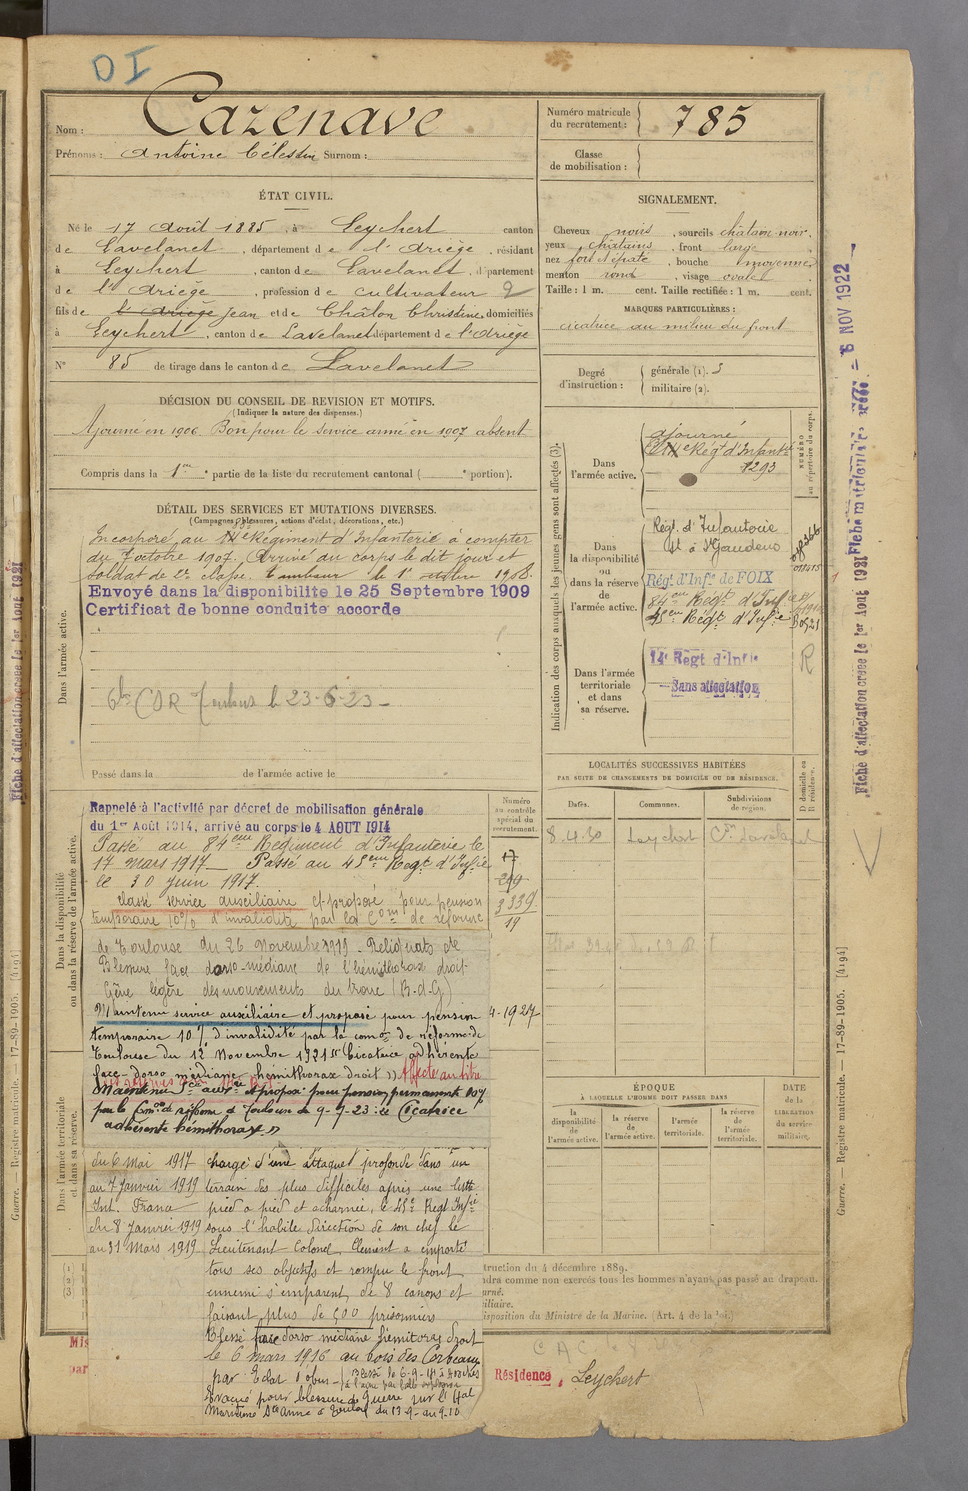 DI
Nom : Cazenave
Prénoms : Antoine Célestin Surnom :
Numéro matricule du recrutement : 785
Classe de mobilisation :
ÉTAT CIVIL.
Né le 17 Août 1885, à Leychert canton
de Lavelanet, département de l'Ariège, résidant
à Leychert, canton de Lavelanet, département
de l'Ariège, profession de cultivateur 2
fils de l'Ariège Jean et de Châlon Christine, domiciliés
à Leychert, canton de Lavelanet département de l'Ariège
N° 85 de tirage dans le canton de Lavelanet
SIGNALEMENT.
Cheveux noirs, sourcils châtain noir,
yeux châtains, front large,
nez fort épaté, bouche moyenne,
menton rond, visage ovale
Taille : 1 m. cent. Taille rectifiée : 1 m. cent.
MARQUES PARTICULIÈRES :
cicatrice au milieu du front
Degré d'instruction : générale (1). 3
militaire (2).
DÉCISION DU CONSEIL DE REVISION ET MOTIFS.
(Indiquer la nature des dispenses.)
Ajourné en 1906. Bon pour le service armé en 1907 absent
Compris dans la 1re partie de la liste du recrutement cantonal ( e portion).
DÉTAIL DES SERVICES ET MUTATIONS DIVERSES.
(Campagnes, blessures, actions d'éclat, décorations, etc.)
Incorporé au Régiment d'Infanterie à compter
du 7 octobre 1907. Arrivé au corps le dit jour et
soldat de 2e classe. Tambour le 1er octobre 1908.
Envoyé dans la disponibilite le 25 Septembre 1909
Certificat de bonne conduite accorde
le 23-6-23
Passé dans la de l'armée active le
Dans l'armée active.
Indication des corps auxquels les jeunes gens sont affectés (3).
NUMÉRO au répertoire du corps.
Dans l'armée active. ajourné
Régt d'Infanterie
1293
Dans la disponibilité ou dans la réserve de l'armée active.
Régt. d'Infanterie
à St Gaudens
Régt d'Infie de FOIX
84eme Régt d'Infie
45eme Régt d'Infie
Dans l'armée territoriale et dans sa réserve.
14e Regt d'Infie
Sans affectation
R
LOCALITÉS SUCCESSIVES HABITÉES
PAR SUITE DE CHANGEMENTS DE DOMICILE OU DE RÉSIDENCE.
Dates. Communes. Subdivisions de région. D domicile ou R résidence.
8.4.30 Leychert
Dans la disponibilité ou dans la réserve de l'armée active.
Numéro au contrôle spécial du recrutement.
Rappelé à l'activité par décret de mobilisation générale
du 1er Août 1914, arrivé au corps le 4 AOUT 1914
Passé au 84eme Régiment d'Infanterie le
17 mars 1917 Passé au 45eme Regt d'Infie
le 30 juin 1917.
17
209
3339
19
classé service auxiliaire et proposé pour pension
temporaire 10% d'invalidité par la Com de réforme
de Toulouse du 26 Novembre 1919. Reliquats de
Blessure face dorso-médiane de l'hémithorax droit
Gêne légère des mouvements du tronc (B.d.G)
Maintenu service auxiliaire et proposé pour pension
4-1927
temporaire 10% d'invalidité par la comon de réforme de
Toulouse du 12 Novembre 1921 "Cicatrice adhérente
face dorso médiane hémithorax droit" Affecté au titre
Maintenu Sce auxre et proposé pour pension permanente 10%
par la Comon de réforme de Toulouse du 9-7-23 : "Cicatrice
adhérente hémithorax"
Dans l'armée territoriale et dans sa réserve.
du 6 Mai 1917
au 7 Janvier 1919
Int. France
du 8 Janvier 1919
au 31 Mars 1919
chargé d'une attaque profonde dans un
terrain des plus difficiles après une lutte
pied à pied et acharnée, le 45e Regt Infie
sous l'habile direction de son chef le
Lieutenant Colonel Clément a emporté
tous ses objectifs et rompu le front
ennemi s'emparant de 8 canons et
faisant plus de 500 prisonniers
Blessé face dorso médiane hémitorax droit
le 6 mars 1916 au bois des Corbeaux
par Eclat d'obus
Evacué pour blessure de guerre sur l'Hal
Maritime Ste Anne à Toulon du 13-9- au 9-10
ÉPOQUE
À LAQUELLE L'HOMME DOIT PASSER DANS
la disponibilité de l'armée active. la réserve de l'armée active. l'armée territoriale. la réserve de l'armée territoriale.
DATE de la LIBÉRATION du service militaire.
truction du 4 décembre 1889.
dra comme non exercés tous les hommes n'ayant pas passé au drapeau.
urné.
iliaire.
isposition du Ministre de la Marine. (Art. 4 de la loi.)
Mis
par
Résidence, Leychert
Guerre. — Registre matricule. — 17-89-1905. [4194]
Guerre. — Registre matricule. — 17-89-1905. [4194]
Fiche d'affectation creee le 1er Aout 1921
Fiche d'affectation creee le 1er Aout 1921
6 NOV 1922